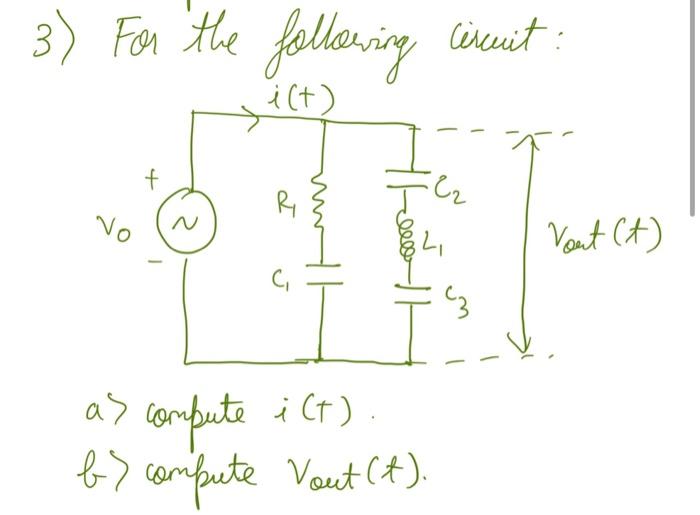 3) For the following circuit:
i(t)
+
Vo
~
-
R1
C1
C2
L1
C3
Vout(t)
a) compute i(t).
b) compute Vout(t).